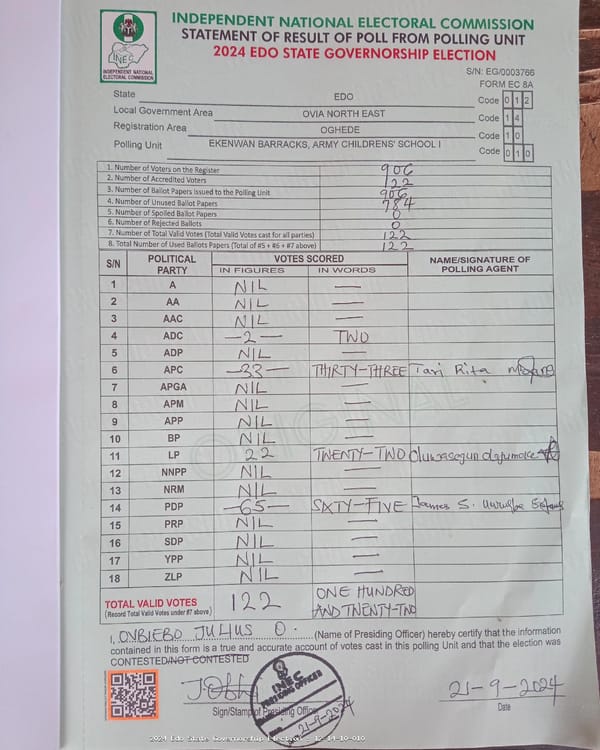 INDEPENDENT NATIONAL ELECTORAL COMMISSION
STATEMENT OF RESULT OF POLL FROM POLLING UNIT
2024 EDO STATE GOVERNORSHIP ELECTION
INEC
INDEPENDENT NATIONAL
ELECTORAL COMMISSION
S/N: EG/0003766
FORM EC 8A
State EDO Code 0 1 2
Local Government Area OVIA NORTH EAST Code 1 4
Registration Area OGHEDE Code 1 0
Polling Unit EKENWAN BARRACKS, ARMY CHILDRENS' SCHOOL I Code 0 1 0
1. Number of Voters on the Register 906
2. Number of Accredited Voters 122
3. Number of Ballot Papers Issued to the Polling Unit 906
4. Number of Unused Ballot Papers 784
5. Number of Spoiled Ballot Papers 0
6. Number of Rejected Ballots 0
7. Number of Total Valid Votes (Total Valid Votes cast for all parties) 122
8. Total Number of Used Ballots Papers (Total of #5 + #6 + #7 above) 122
S/N POLITICAL PARTY VOTES SCORED NAME/SIGNATURE OF POLLING AGENT
IN FIGURES IN WORDS
1 A NIL —
2 AA NIL —
3 AAC NIL —
4 ADC -2- TWO
5 ADP NIL —
6 APC -33- THIRTY-THREE Tari Rita
7 APGA NIL —
8 APM NIL —
9 APP NIL —
10 BP NIL —
11 LP 22 TWENTY-TWO
12 NNPP NIL —
13 NRM NIL —
14 PDP -65- SIXTY-FIVE James S.
15 PRP NIL —
16 SDP NIL —
17 YPP NIL —
18 ZLP NIL —
ORIGINAL
TOTAL VALID VOTES 122 ONE HUNDRED
(Record Total Valid Votes under #7 above) AND TWENTY-TWO
I, OVBIEBO JULIUS O. (Name of Presiding Officer) hereby certify that the information
contained in this form is a true and accurate account of votes cast in this polling Unit and that the election was
CONTESTED/NOT CONTESTED
INEC
21-9-2024
21-9-2024
Sign/Stamp of Presiding Officer Date
2024 Edo State Governorship Election - 12-14-10-010